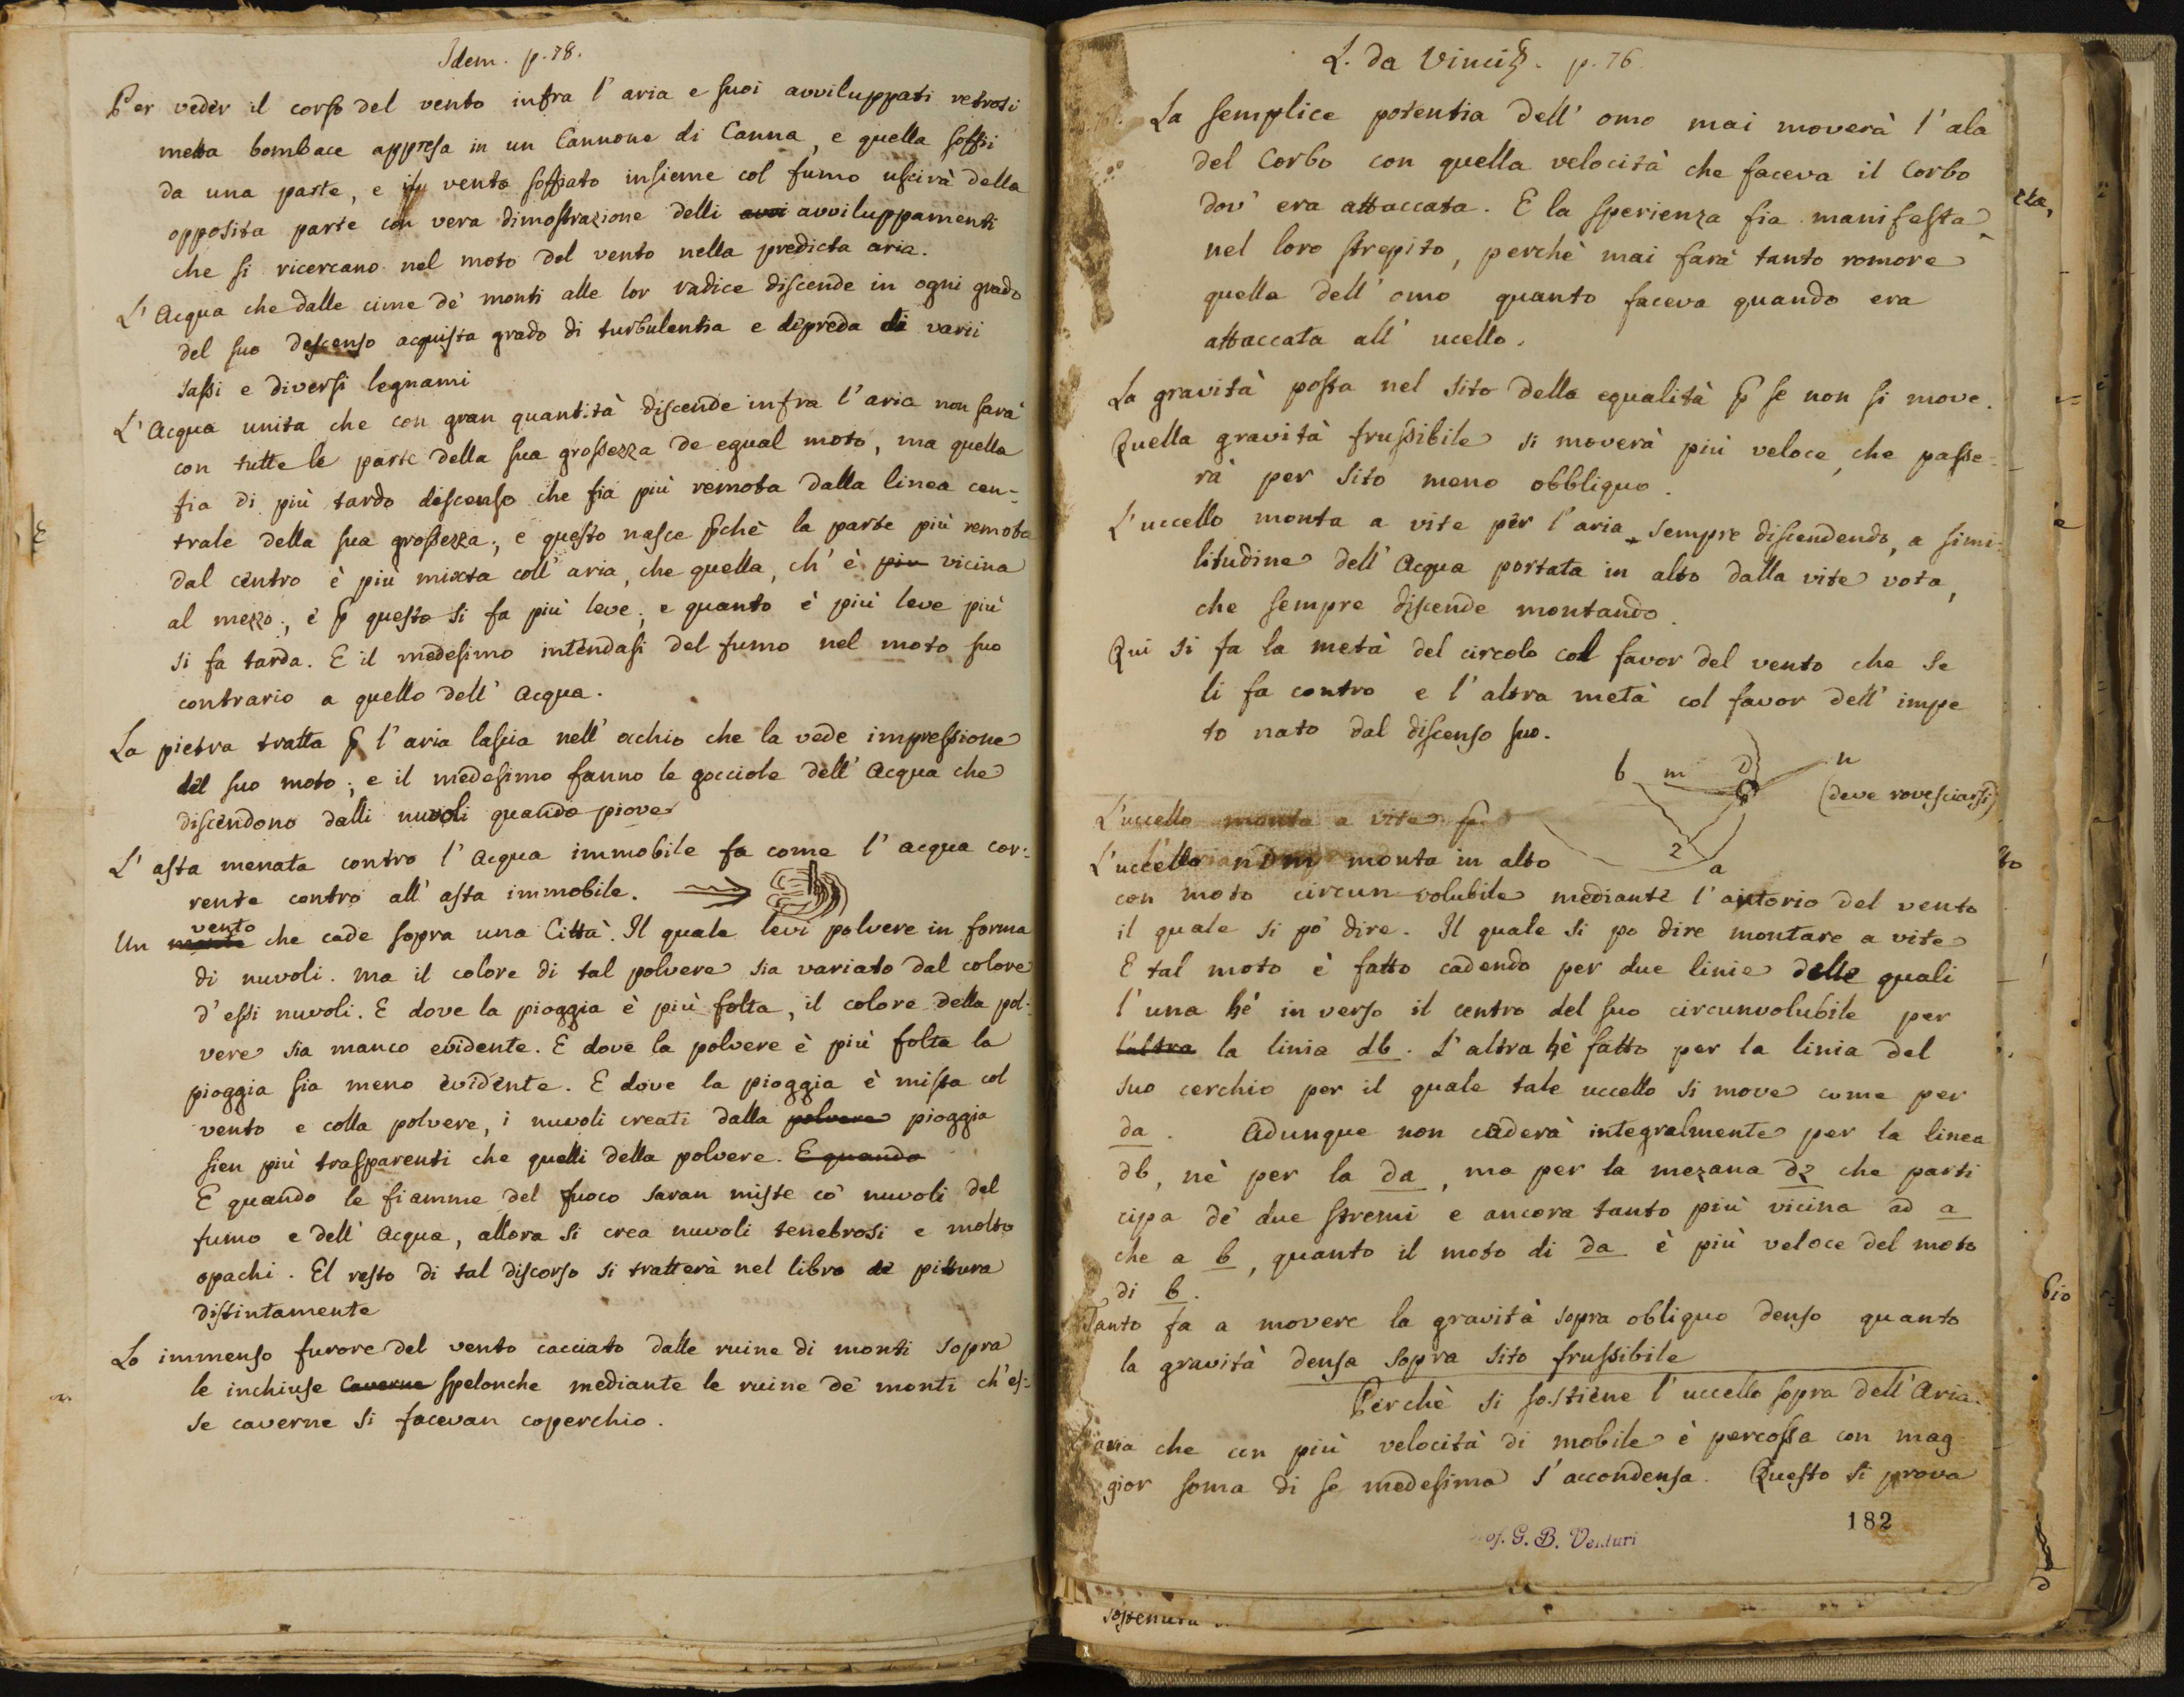 Idem. p. 78.
Per veder il corso del vento infra l'aria e suoi avviluppati retrosi
metta bombace appresa in un Cannone di Canna, e quella soffi
da una parte, e vento soffiato insieme col fumo uscirà della
opposita parte con vera dimostrazione delli avvi avviluppamenti
che si ricercano nel moto del vento nella predicta aria.
L'Acqua che dalle cime de' monti alle lor radice discende in ogni grado
del suo descenso acquista grado di turbulentia e dipreda di varii
sassi e diversi legnami
L'Acqua unita che con gran quantità discende infra l'aria non sarà
con tutte le parte della sua grossezza de equal moto, ma quella
fia di più tardo discenso che fia più remota dalla linea cen=
trale della sua grossezza; e questo nasce pchè la parte più remota
dal centro è più mixta coll'aria, che quella, ch'è piu vicina
al mezzo; e p questo si fa più leve; e quanto è più leve più
si fa tarda. E il medesimo intendasi del fumo nel moto suo
contrario a quello dell'Acqua.
La pietra tratta p l'aria lascia nell'occhio che la vede impressione
del suo moto; e il medesimo fanno le gocciole dell'Acqua che
discendono dalli nuvoli quando piove
L'asta menata contro l'Acqua immobile fa come l'acqua cor=
rente contro all'asta immobile.
vento
Un monte che cade sopra una Città. Il quale levi polvere in forma
di nuvoli. ma il colore di tal polvere sia variato dal colore
d'essi nuvoli. E dove la pioggia è più folta, il colore della pol=
vere sia manco evidente. E dove la polvere è più folta la
pioggia sia meno evidente. E dove la pioggia è mista col
vento e colla polvere, i nuvoli creati dalla polvere pioggia
sien più trasparenti che quelli della polvere. E quando
E quando le fiamme del fuoco saran miste co' nuvoli del
fumo e dell'Acqua, allora si crea nuvoli tenebrosi e molto
opachi. El resto di tal discorso si tratterà nel libro de pittura
distintamente
Lo immenso furore del vento cacciato dalle ruine di monti sopra
le inchiuse Caverne spelonche mediante le ruine de' monti ch'es=
se caverne si facevan coperchio.
L. da Vinci. p. 76.
La semplice potentia dell'omo mai moverà l'ala
del Corbo con quella velocità che faceva il Corbo
dov'era attaccata. E la sperienza fia manifesta
nel loro strepito, perchè mai farà tanto romore
quella dell'omo quanto faceva quando era
attaccata all'ucello.
La gravità posta nel sito della equalità p se non si move.
Quella gravità frussibile si moverà più veloce, che passe=
rà per sito meno obbliguo.
L'uccello monta a vite per l'aria sempre discendendo, a simi=
litudine dell'Acqua portata in alto dalla vite vota,
che sempre discende montando.
Qui si fa la metà del circolo col favor del vento che se
li fa contro e l'altra metà col favor dell'impe
to nato dal discenso suo.
b m D n
(deve rovesciarsi)
L'uccello monta a vite p
2 a
L'uccello nDm monta in alto
con moto circunvolubile mediante l'aiutorio del vento
il quale si pò dire. Il quale si po dire montare a vite
E tal moto è fatto cadendo per due linie delle quali
l'una hè in verso il centro del suo circunvolubile per
l'altra la linia db. L'altra hè fatto per la linia del
suo cerchio per il quale tale uccello si move come per
da. Adunque non caderà integralmente per la linea
db, nè per la da, ma per la mezana d2 che parti
cipa de' due stremi e ancora tanto più vicina ad a
che a b, quanto il moto di da è più veloce del moto
di b.
Tanto fa a movere la gravità sopra obliquo denso quanto
la gravità densa sopra sito frussibile
Perchè si sostiene l'uccello sopra dell'Aria.
L'aria che con più velocità di mobile è percossa con mag
gior soma di se medesima s'accondensa. Questo si prova
182
G. B. Venturi